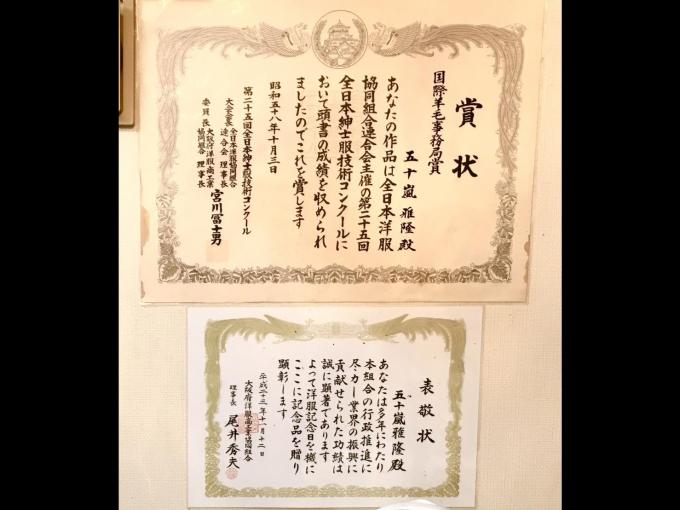 賞状
国際羊毛事務局賞
五十嵐 雅隆殿
あなたの作品は全日本洋服
協同組合連合会主催の第二十五回
全日本紳士服技術コンクールに
おいて頭書の成績を収められ
ましたのでこれを賞します
昭和五十八年十月三日
第二十五回全日本紳士服技術コンクール
大会会長 全日本洋服協同組合
連合会 理事長
委員長 大阪府洋服商工業
協同組合 理事長
宮川冨士男
表敬状
五十嵐雅隆殿
あなたは多年にわたり
本組合の行政推進に
尽力し業界の振興に
貢献せられた功績は
誠に顕著であります
よって洋服記念日を機に
ここに記念品を贈り
顕彰します
平成二十三年十一月十二日
大阪府洋服商工業協同組合
理事長 尾井秀夫